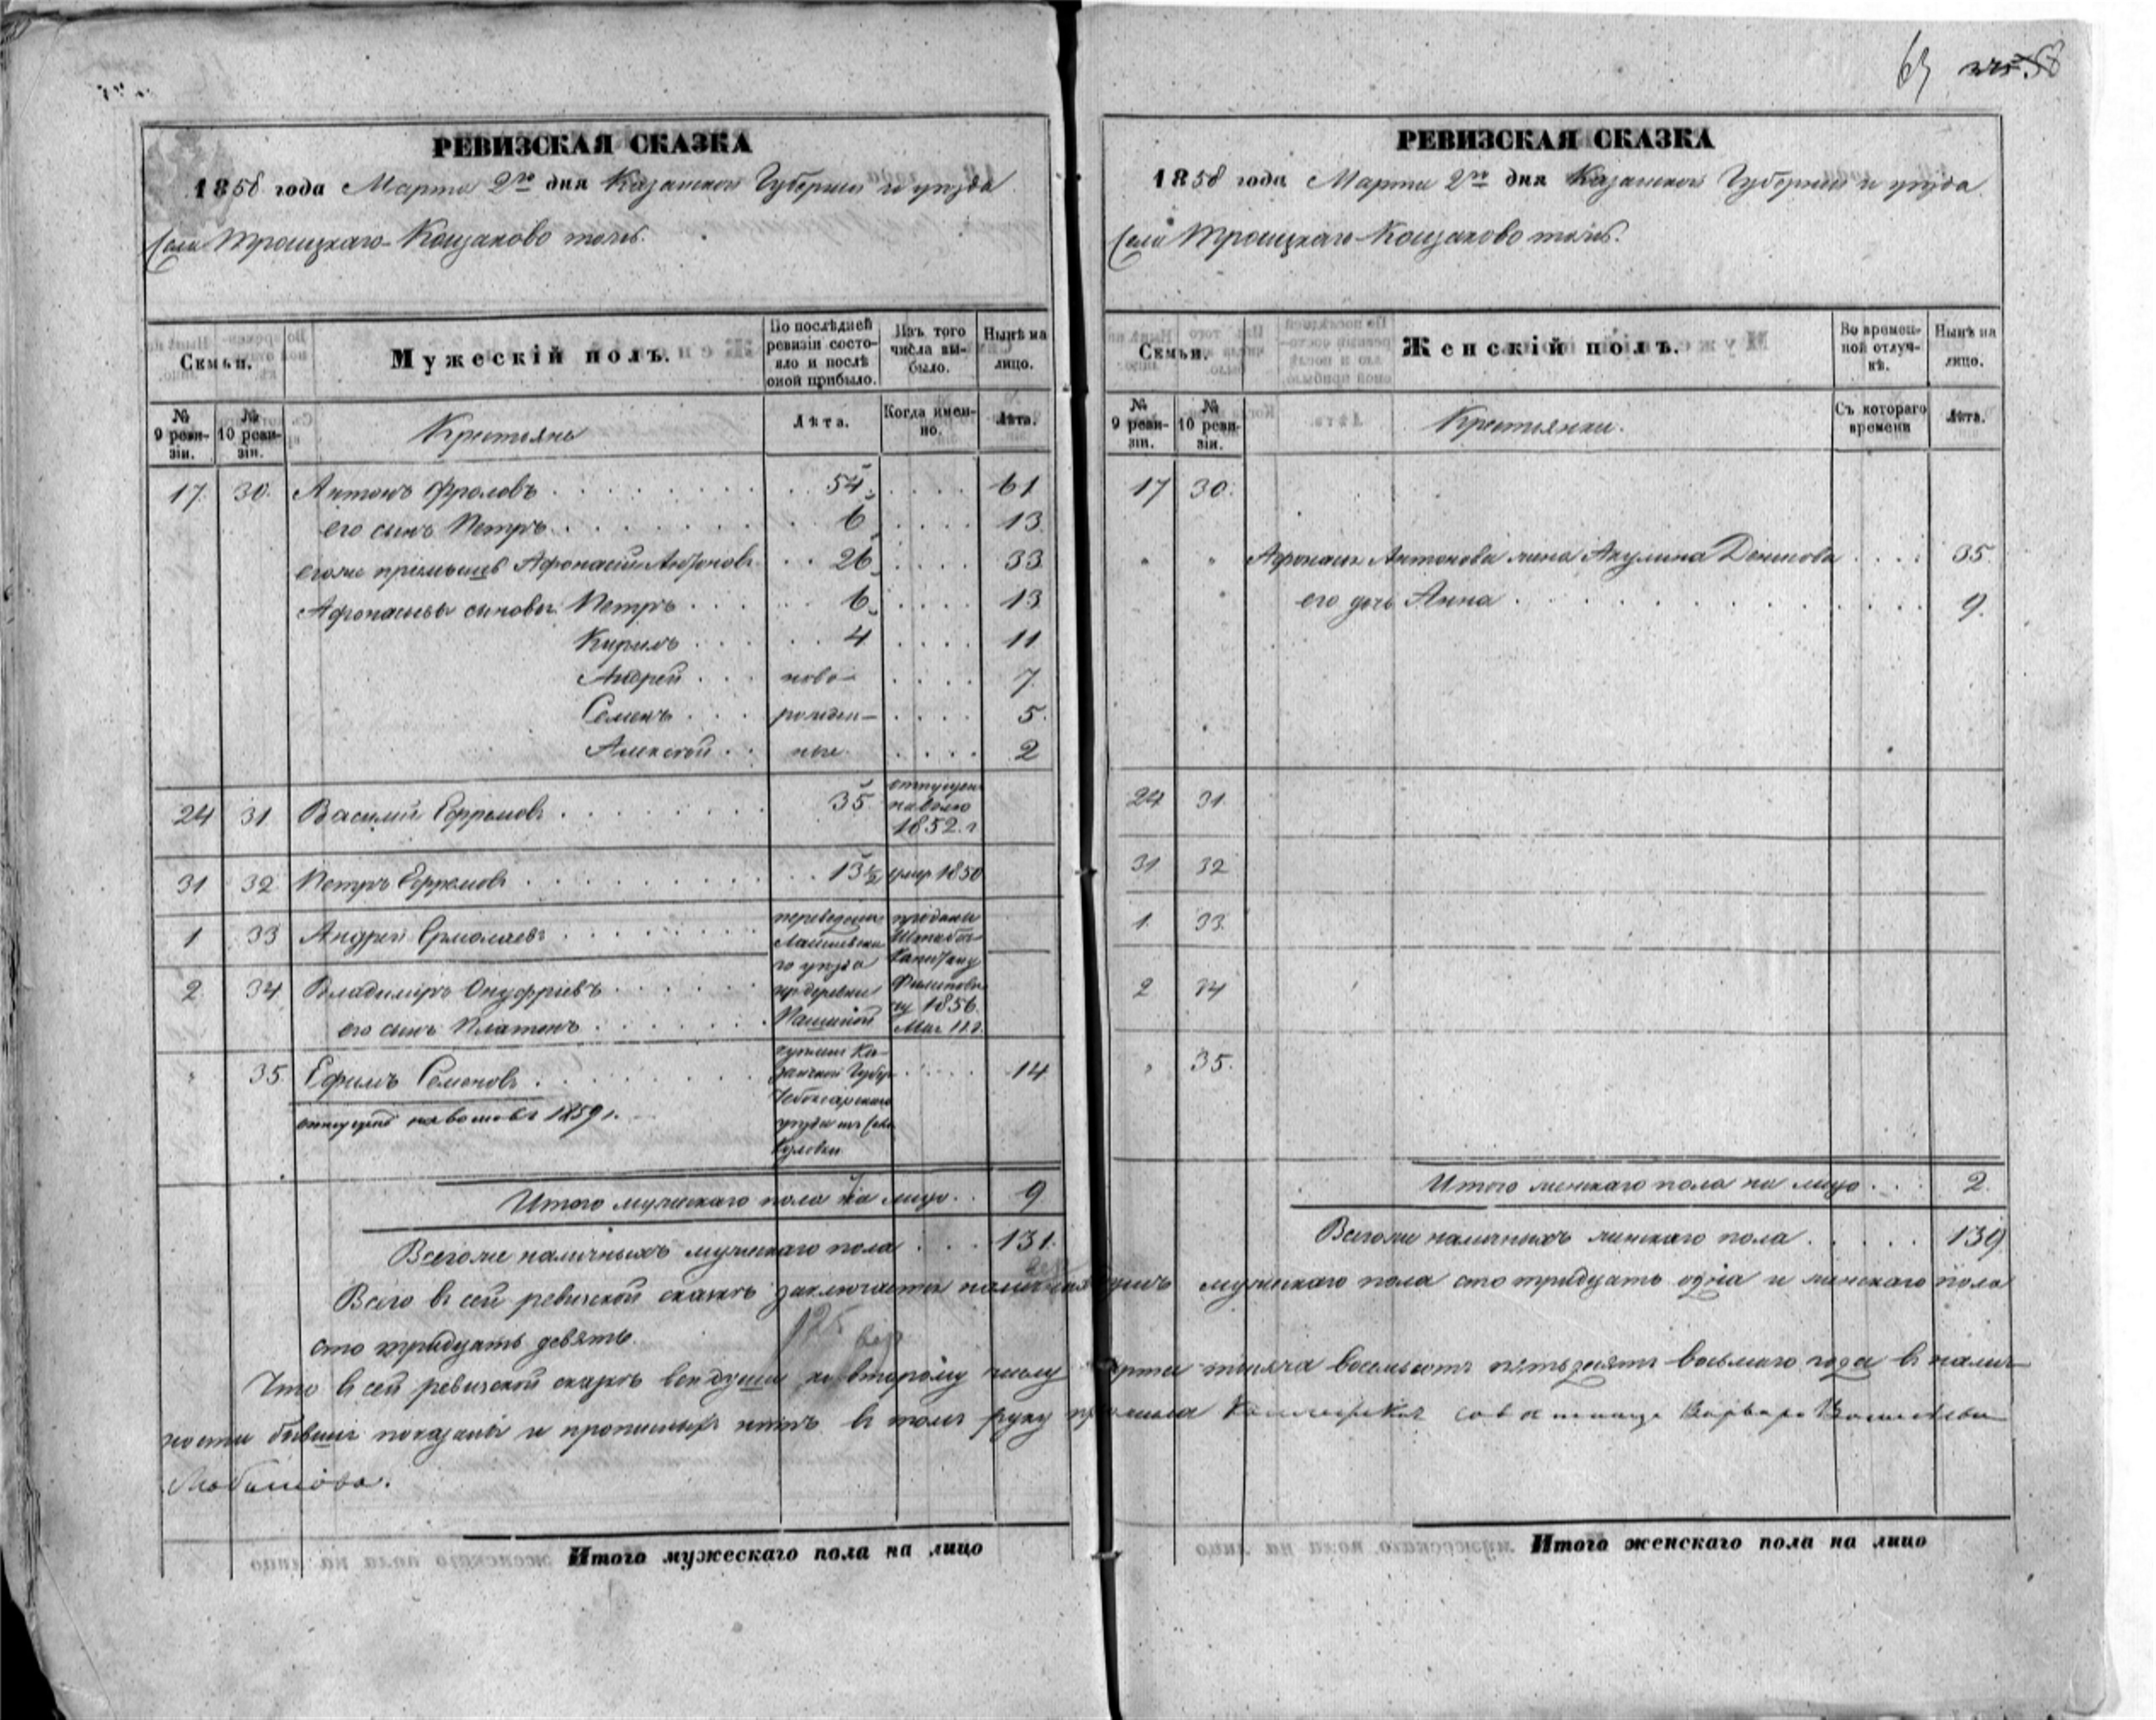 63
РЕВИЗСКАЯ СКАЗКА
1858 года Марта 2го дня Казанской Губернии и уезда
Села Троицкаго-Кощаково тожъ.
Скмьи.
Мужескій полъ.
По послѣдней ревизіи состояло и послѣ оной прибыло.
Изъ того числа выбыло.
Нынѣ на лицо.
№ 9 ревизіи.
№ 10 ревизіи.
Крестьяне
Лѣта.
Когда именно.
Лѣта.
17. 30. Антонъ Фроловъ 54 61
его сынъ Петръ 6 13
его же пріемышъ Афонасій Антоновъ 26 33
Афонасьевы сыновья: Петръ 6 13
Кирилъ 4 11
Андрей ново- 7
Семенъ рожден- 5
Алексѣй ные 2
24 31 Василий Ефремовъ 35 отпущен на волю 1852 г
31 32 Петръ Ефремовъ 13½ умер 1850
1 33 Андрей Ермолаевъ
2 34 Владимиръ Онуфріевъ
его сынъ Платонъ
переведены Лаишевскаго уезда из деревни
проданы Штабсъ Капитану 1856
35. Ефимъ Семеновъ 14
куплен Казанской Губер Чебоксарскаго уезда из села
отпущенъ на волю въ 1859 г.
Итого мужескаго пола на лицо 9
Всего же наличныхъ мужескаго пола 131
Всего въ сей ревизской сказкѣ заключается наличныхъ душъ мужескаго пола сто тридцать одна и женскаго пола
сто тридцать девять.
125
Что въ сей ревизской сказкѣ все души ко второму числу Марта тысяча восемьсотъ пятьдесятъ восьмаго года въ налич-
ности бывшія показаны и прописныхъ нѣтъ въ томъ руку приложила Коллежская советница Варвара Васильева
Итого мужескаго пола на лицо
РЕВИЗСКАЯ СКАЗКА
1858 года Марта 2го дня Казанской Губернии и уезда
Села Троицкаго-Кощаково тожъ.
Скмьи.
Женскій полъ.
Во временной отлучкѣ.
Нынѣ на лицо.
№ 9 ревизіи.
№ 10 ревизіи.
Крестьянки.
Съ котораго времени
Лѣта.
17 30.
" " Афонасья Антонова жена Акулина Денисова 35
его дочь Анна 9.
24 31
31 32
1. 33.
2 34
" 35.
Итого женскаго пола на лицо 2.
Всего же наличныхъ женскаго пола 139
Итого женскаго пола на лицо